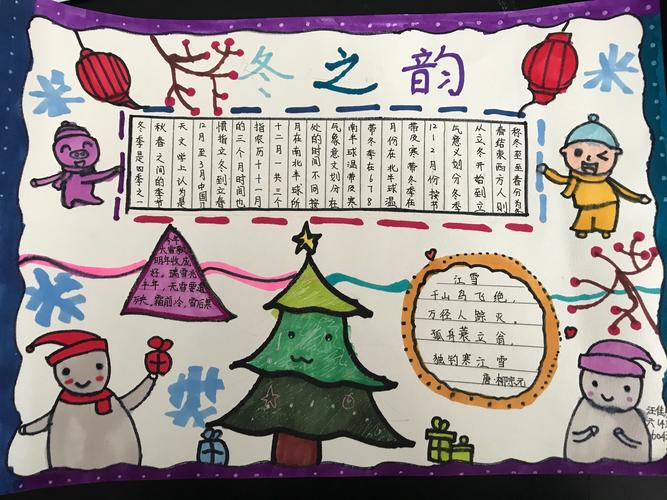 冬之韵
冬季是四季之一
秋春之间的季节
天文学上认为是
12月至3月中国习
惯指立冬到立春
的三个月时间也
指农历十十一月
十二月一共三个
月在南北半球所
处的时间不同按
气象意义划分在
南半球温带及寒
带冬季在678
月份在北半球温
带及寒带冬季在
12 1 2月份按节
气意义划分冬季
从立冬开始到立
春结束西方人则
称冬至至春分为冬
今年
大雪飘
明年收成
好。瑞雪兆
丰年,无雪要遭
殃,霜前冷,雪后寒
江雪
千山鸟飞绝,
万径人踪灭。
孤舟蓑立翁,
独钓寒江雪
唐·柳宗元